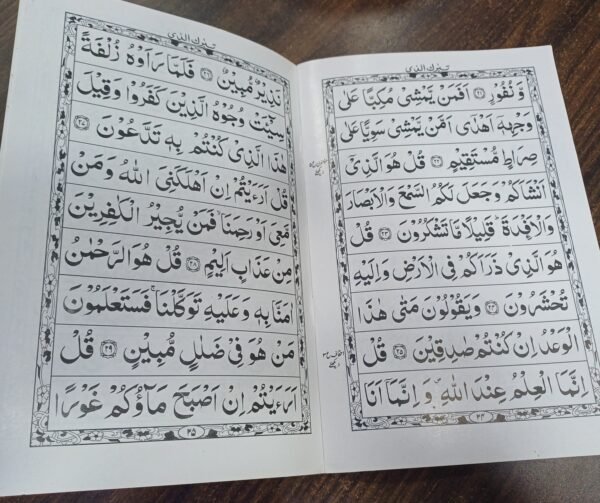 تبٰرك الذی
وَّ نُفُوْرٍ ۝۲۱ اَفَمَنْ یَّمْشِیْ مُكِبًّا عَلٰی
وَجْهِهٖۤ اَهْدٰۤی اَمَّنْ یَّمْشِیْ سَوِیًّا عَلٰی
صِرَاطٍ مُّسْتَقِیْمٍ ۝۲۲ قُلْ هُوَ الَّذِیْۤ
اَنْشَاَكُمْ وَ جَعَلَ لَكُمُ السَّمْعَ وَ الْاَبْصَارَ
وَ الْاَفْـِٕدَةَ ؕ قَلِیْلًا مَّا تَشْكُرُوْنَ ۝۲۳ قُلْ
هُوَ الَّذِیْ ذَرَاَكُمْ فِی الْاَرْضِ وَ اِلَیْهِ
تُحْشَرُوْنَ ۝۲۴ وَ یَقُوْلُوْنَ مَتٰی هٰذَا
الْوَعْدُ اِنْ كُنْتُمْ صٰدِقِیْنَ ۝۲۵ قُلْ
اِنَّمَا الْعِلْمُ عِنْدَ اللّٰهِ ۪ وَ اِنَّمَاۤ اَنَا
۲۴
تبٰرك الذی
نَذِیْرٌ مُّبِیْنٌ ۝۲۶ فَلَمَّا رَاَوْهُ زُلْفَةً
سِیْٓـَٔتْ وُجُوْهُ الَّذِیْنَ كَفَرُوْا وَ قِیْلَ
هٰذَا الَّذِیْ كُنْتُمْ بِهٖ تَدَّعُوْنَ ۝۲۷
قُلْ اَرَءَیْتُمْ اِنْ اَهْلَكَنِیَ اللّٰهُ وَ مَنْ
مَّعِیَ اَوْ رَحِمَنَا ۙ فَمَنْ یُّجِیْرُ الْكٰفِرِیْنَ
مِنْ عَذَابٍ اَلِیْمٍ ۝۲۸ قُلْ هُوَ الرَّحْمٰنُ
اٰمَنَّا بِهٖ وَ عَلَیْهِ تَوَكَّلْنَا ۚ فَسَتَعْلَمُوْنَ
مَنْ هُوَ فِیْ ضَلٰلٍ مُّبِیْنٍ ۝۲۹ قُلْ
اَرَءَیْتُمْ اِنْ اَصْبَحَ مَآؤُكُمْ غَوْرًا
۲۵